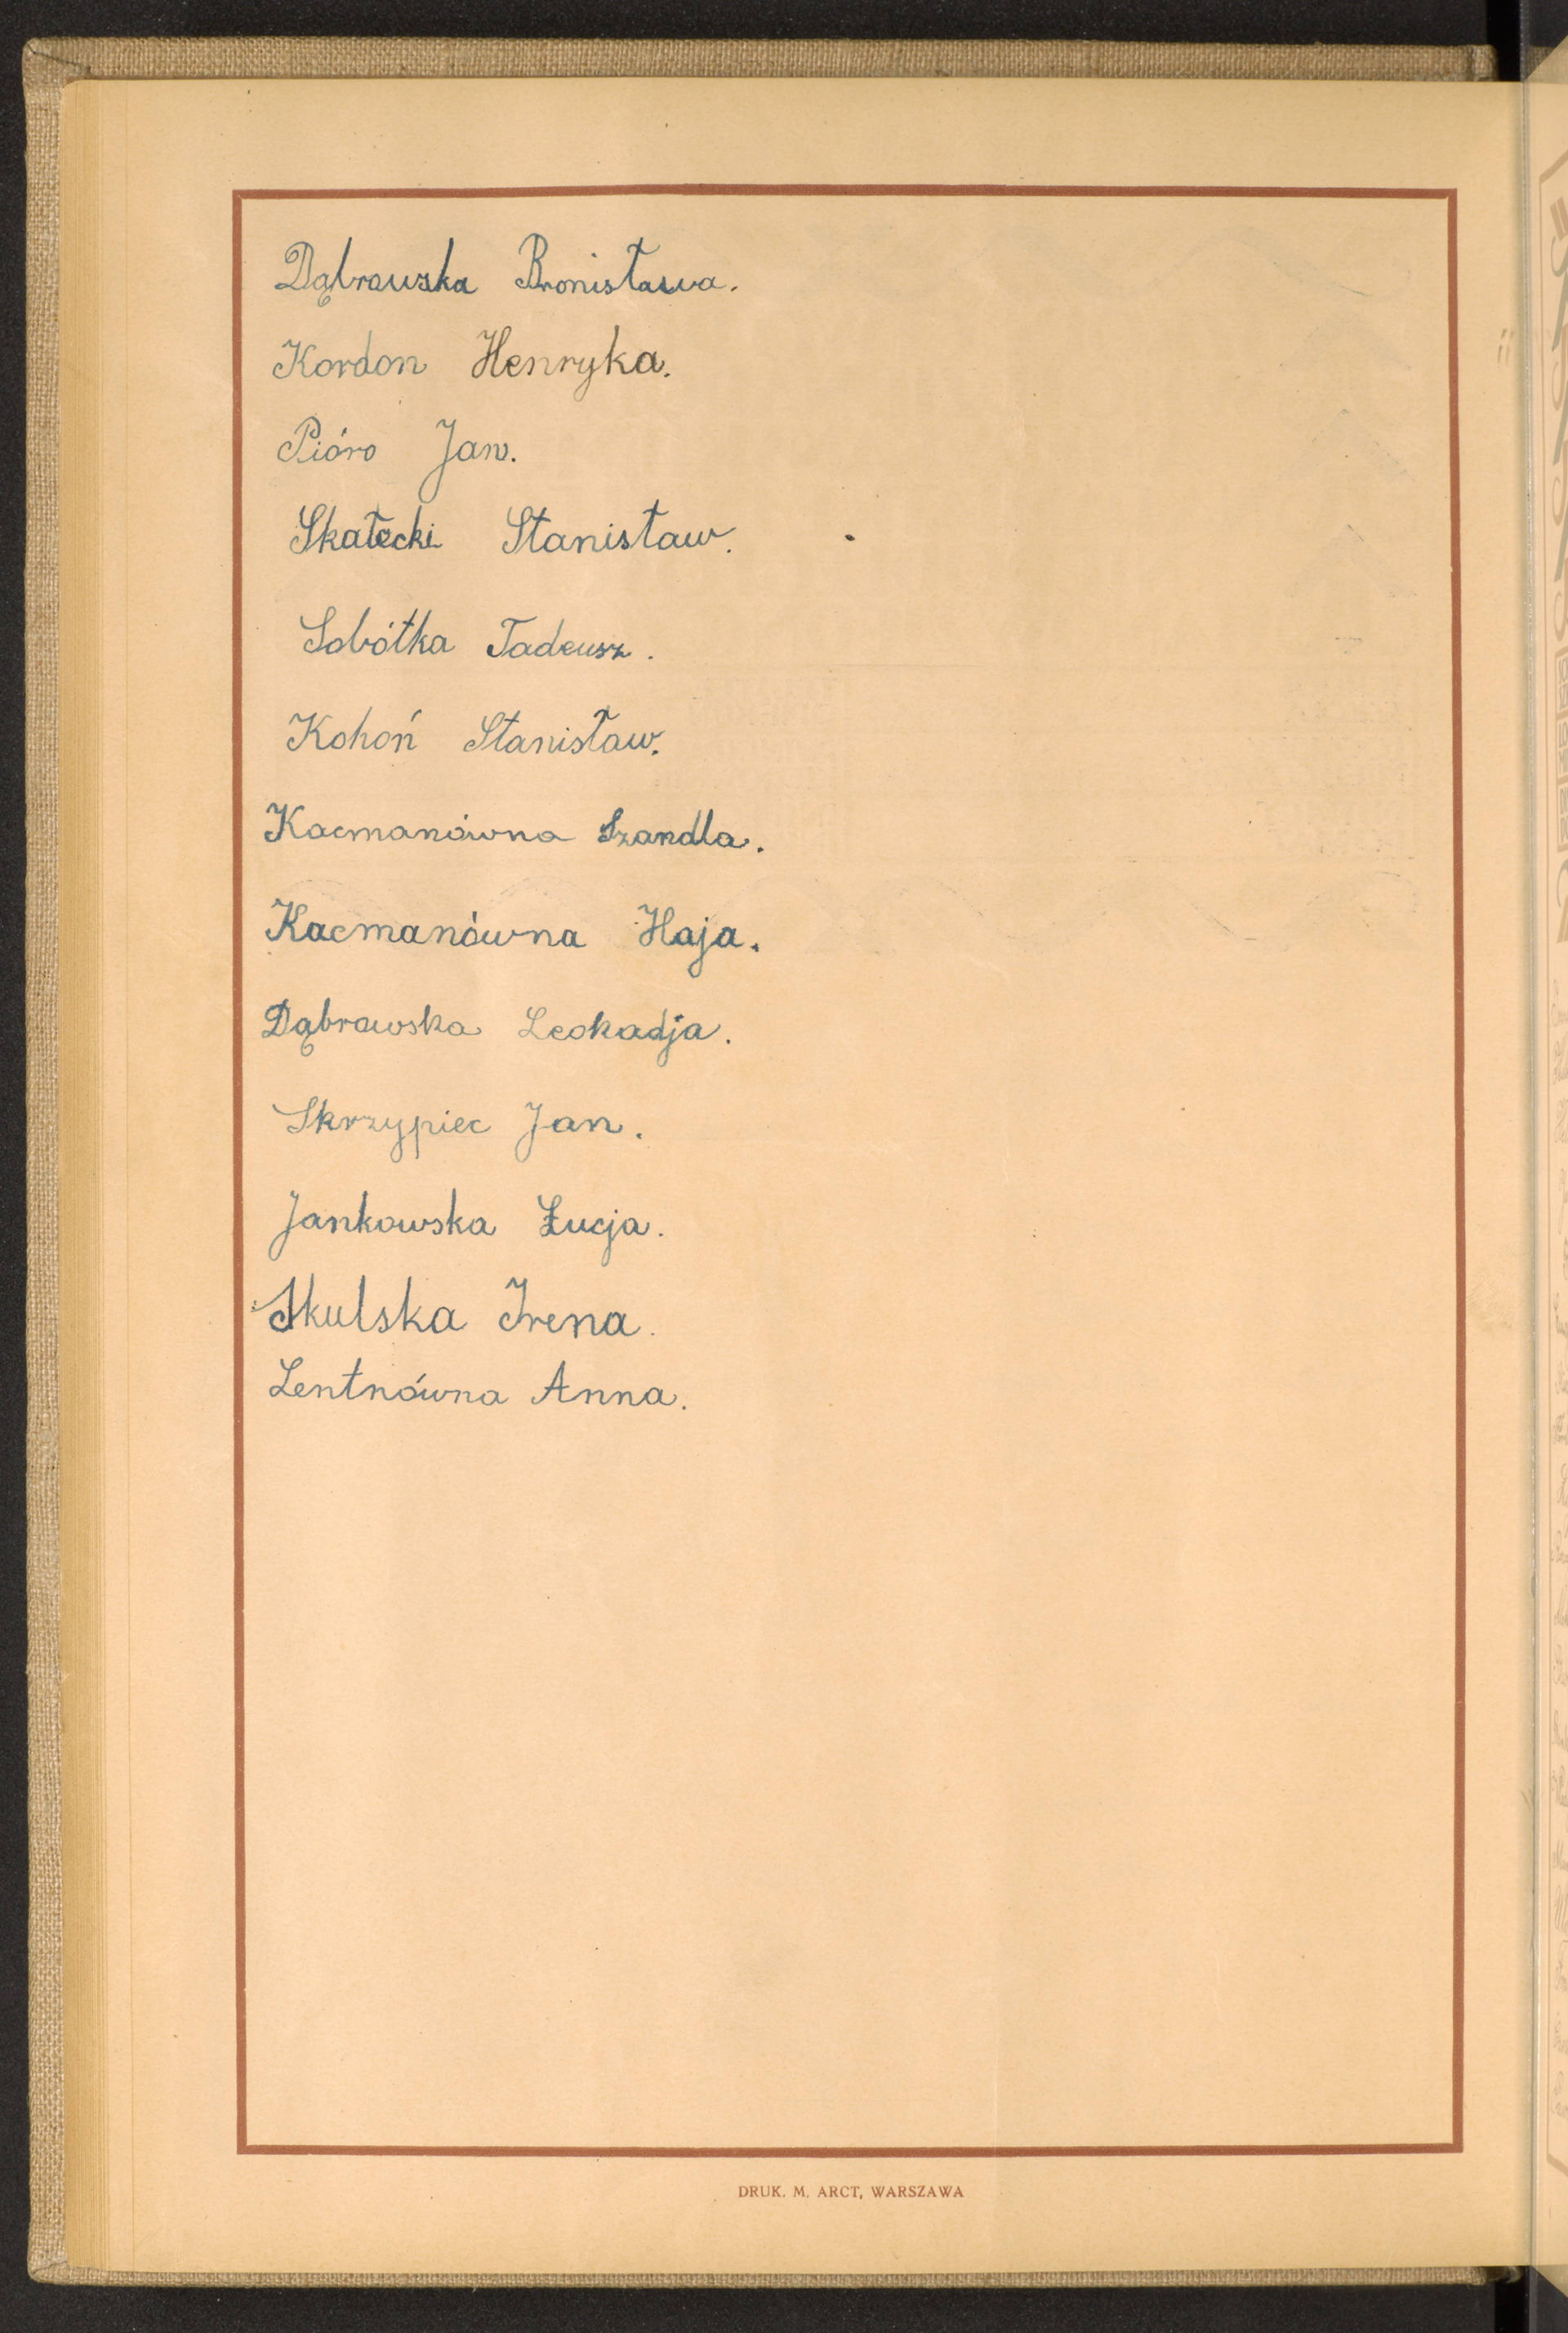 Dąbrowska Bronisława.
Kordon Henryka.
Pióro Jan.
Skałecki Stanisław.
Sobótka Tadeusz.
Kohoń Stanisław.
Kacmanówna Szandla.
Kacmanówna Haja.
Dąbrowska Leokadja.
Skrzypiec Jan.
Jankowska Łucja.
Skulska Irena.
Lentnówna Anna.
DRUK. M. ARCT, WARSZAWA